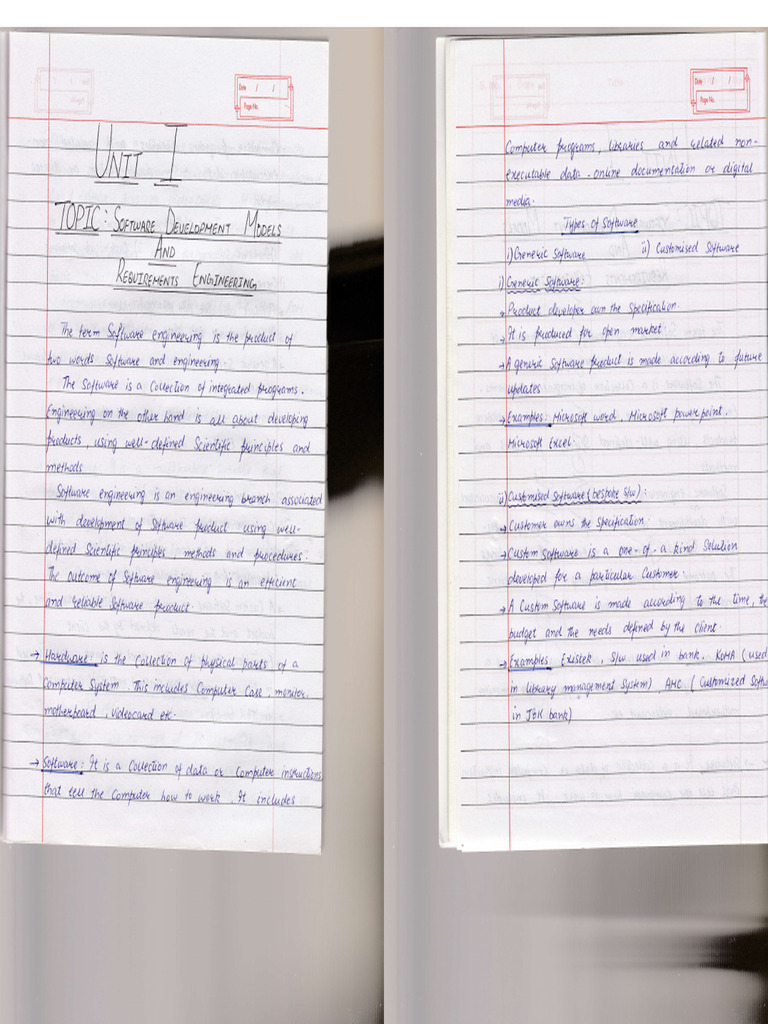 Date / /
Page No.
UNIT I
TOPIC: SOFTWARE DEVELOPMENT MODELS
AND
REQUIREMENTS ENGINEERING
The term Software engineering is the product of
two words software and engineering.
The Software is a collection of integrated programs.
Engineering on the other hand is all about developing
products, using well-defined Scientific principles and
methods
Software engineering is an engineering branch associated
with development of Software product using well-
defined Scientific principles methods and procedures.
The outcome of Software engineering is an efficient
and reliable Software product.
→ Hardware is the collection of physical parts of a
Computer System. This includes Computer Case, monitor,
motherboard, videocard etc.
→ Software: It is a Collection of data or Computer instructions
that tell the Computer how to work. It includes
Date / /
Page No.
Computer programs, libraries and related non-
executable data - online documentation or digital
media.
Types of Software
i) Generic Software ii) Customised Software
i) Generic Software:
→ Product developer own the Specification.
→ It is produced for open market.
→ A generic Software product is made according to future
updates
→ Examples: Microsoft word, Microsoft powerpoint.
Microsoft Excel.
ii) Customised Software (bespoke S/w):
→ Customer owns the Specification
→ Custom Software is a one-of-a kind Solution
developed for a particular Customer.
→ A Custom Software is made according to the time, the
budget and the needs defined by the client.
→ Examples Existek, S/w used in bank. KOHA (used
in library management System) AMC (Customized Softw
in J&K bank)